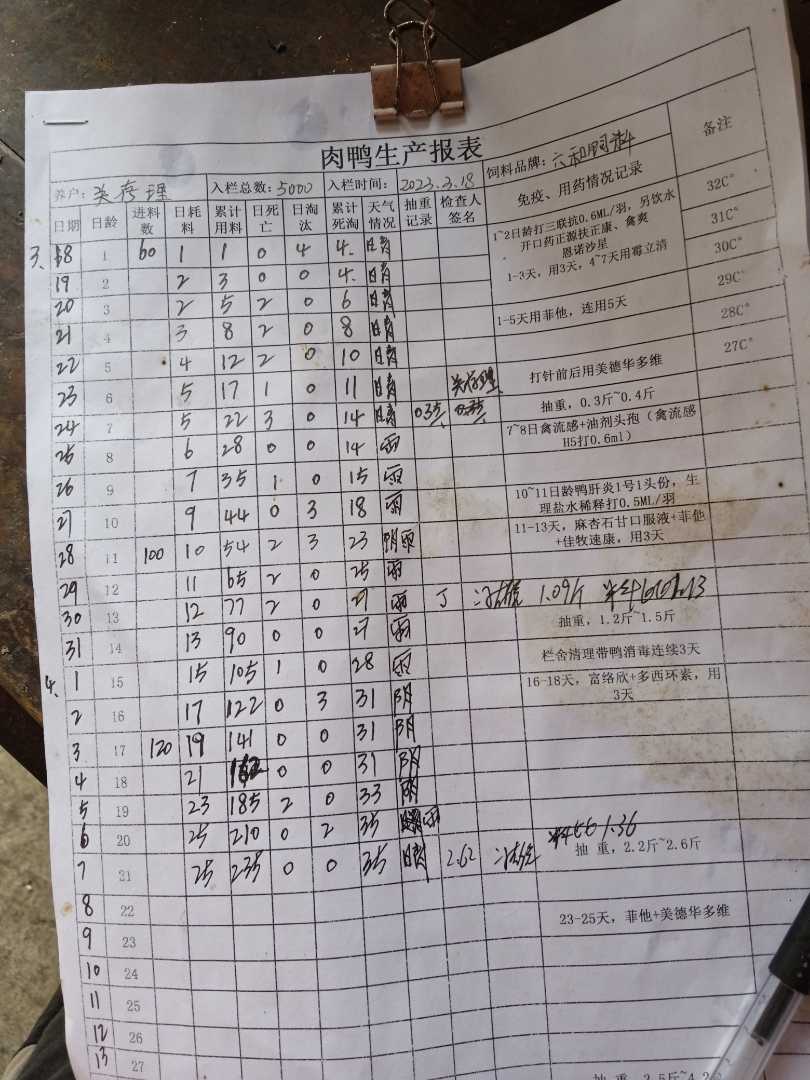 肉鸭生产报表
养户: 关存理 入栏总数: 5000 入栏时间: 2023.3.18 饲料品牌: 六和饲料 备注
日期 日龄 进料数 日耗料 累计用料 日死亡 日淘汰 累计死淘 天气情况 抽重记录 检查人签名 免疫、用药情况记录
3. 18 1 60 1 1 0 4 4 晴 1~2日龄打三联抗0.6ML/羽,另饮水 32C°
开口药正源扶正康、禽爽 31C°
恩诺沙星
19 2 2 3 0 0 4 晴 1-3天,用3天,4~7天用霉立清 30C°
20 3 2 5 2 0 6 晴 29C°
21 4 3 8 2 0 8 晴 1-5天用菲他,连用5天 28C°
22 5 4 12 2 0 10 晴 27C°
23 6 5 17 1 0 11 晴 关存理 打针前后用美德华多维
24 7 5 22 3 0 14 晴 抽重,0.3斤~0.4斤
25 8 6 28 0 0 14 雨 7~8日禽流感+油剂头孢(禽流感
H5打0.6ml)
26 9 7 35 1 0 15 雨
27 10 9 44 0 3 18 雨 10~11日龄鸭肝炎1号1头份,生
理盐水稀释打0.5ML/羽
28 11 100 10 54 2 3 23 阴雨 11-13天,麻杏石甘口服液+菲他
+佳牧速康,用3天
29 12 11 65 2 0 25 雨
30 13 12 77 2 0 27 雨 1.09斤
抽重,1.2斤~1.5斤
31 14 13 90 0 0 27 雨
4. 1 15 15 105 1 0 28 雨 栏舍清理带鸭消毒连续3天
2 16 17 122 0 3 31 阴 16-18天,富络欣+多西环素,用
3天
3 17 120 19 141 0 0 31 阴
4 18 21 162 0 0 31 阴
5 19 23 185 2 0 33 阴
6 20 25 210 0 2 35 雨 1.36
7 21 25 235 0 0 35 晴 2.62 抽 重,2.2斤~2.6斤
8 22
9 23 23-25天,菲他+美德华多维
10 24
11 25
12 26
13 27